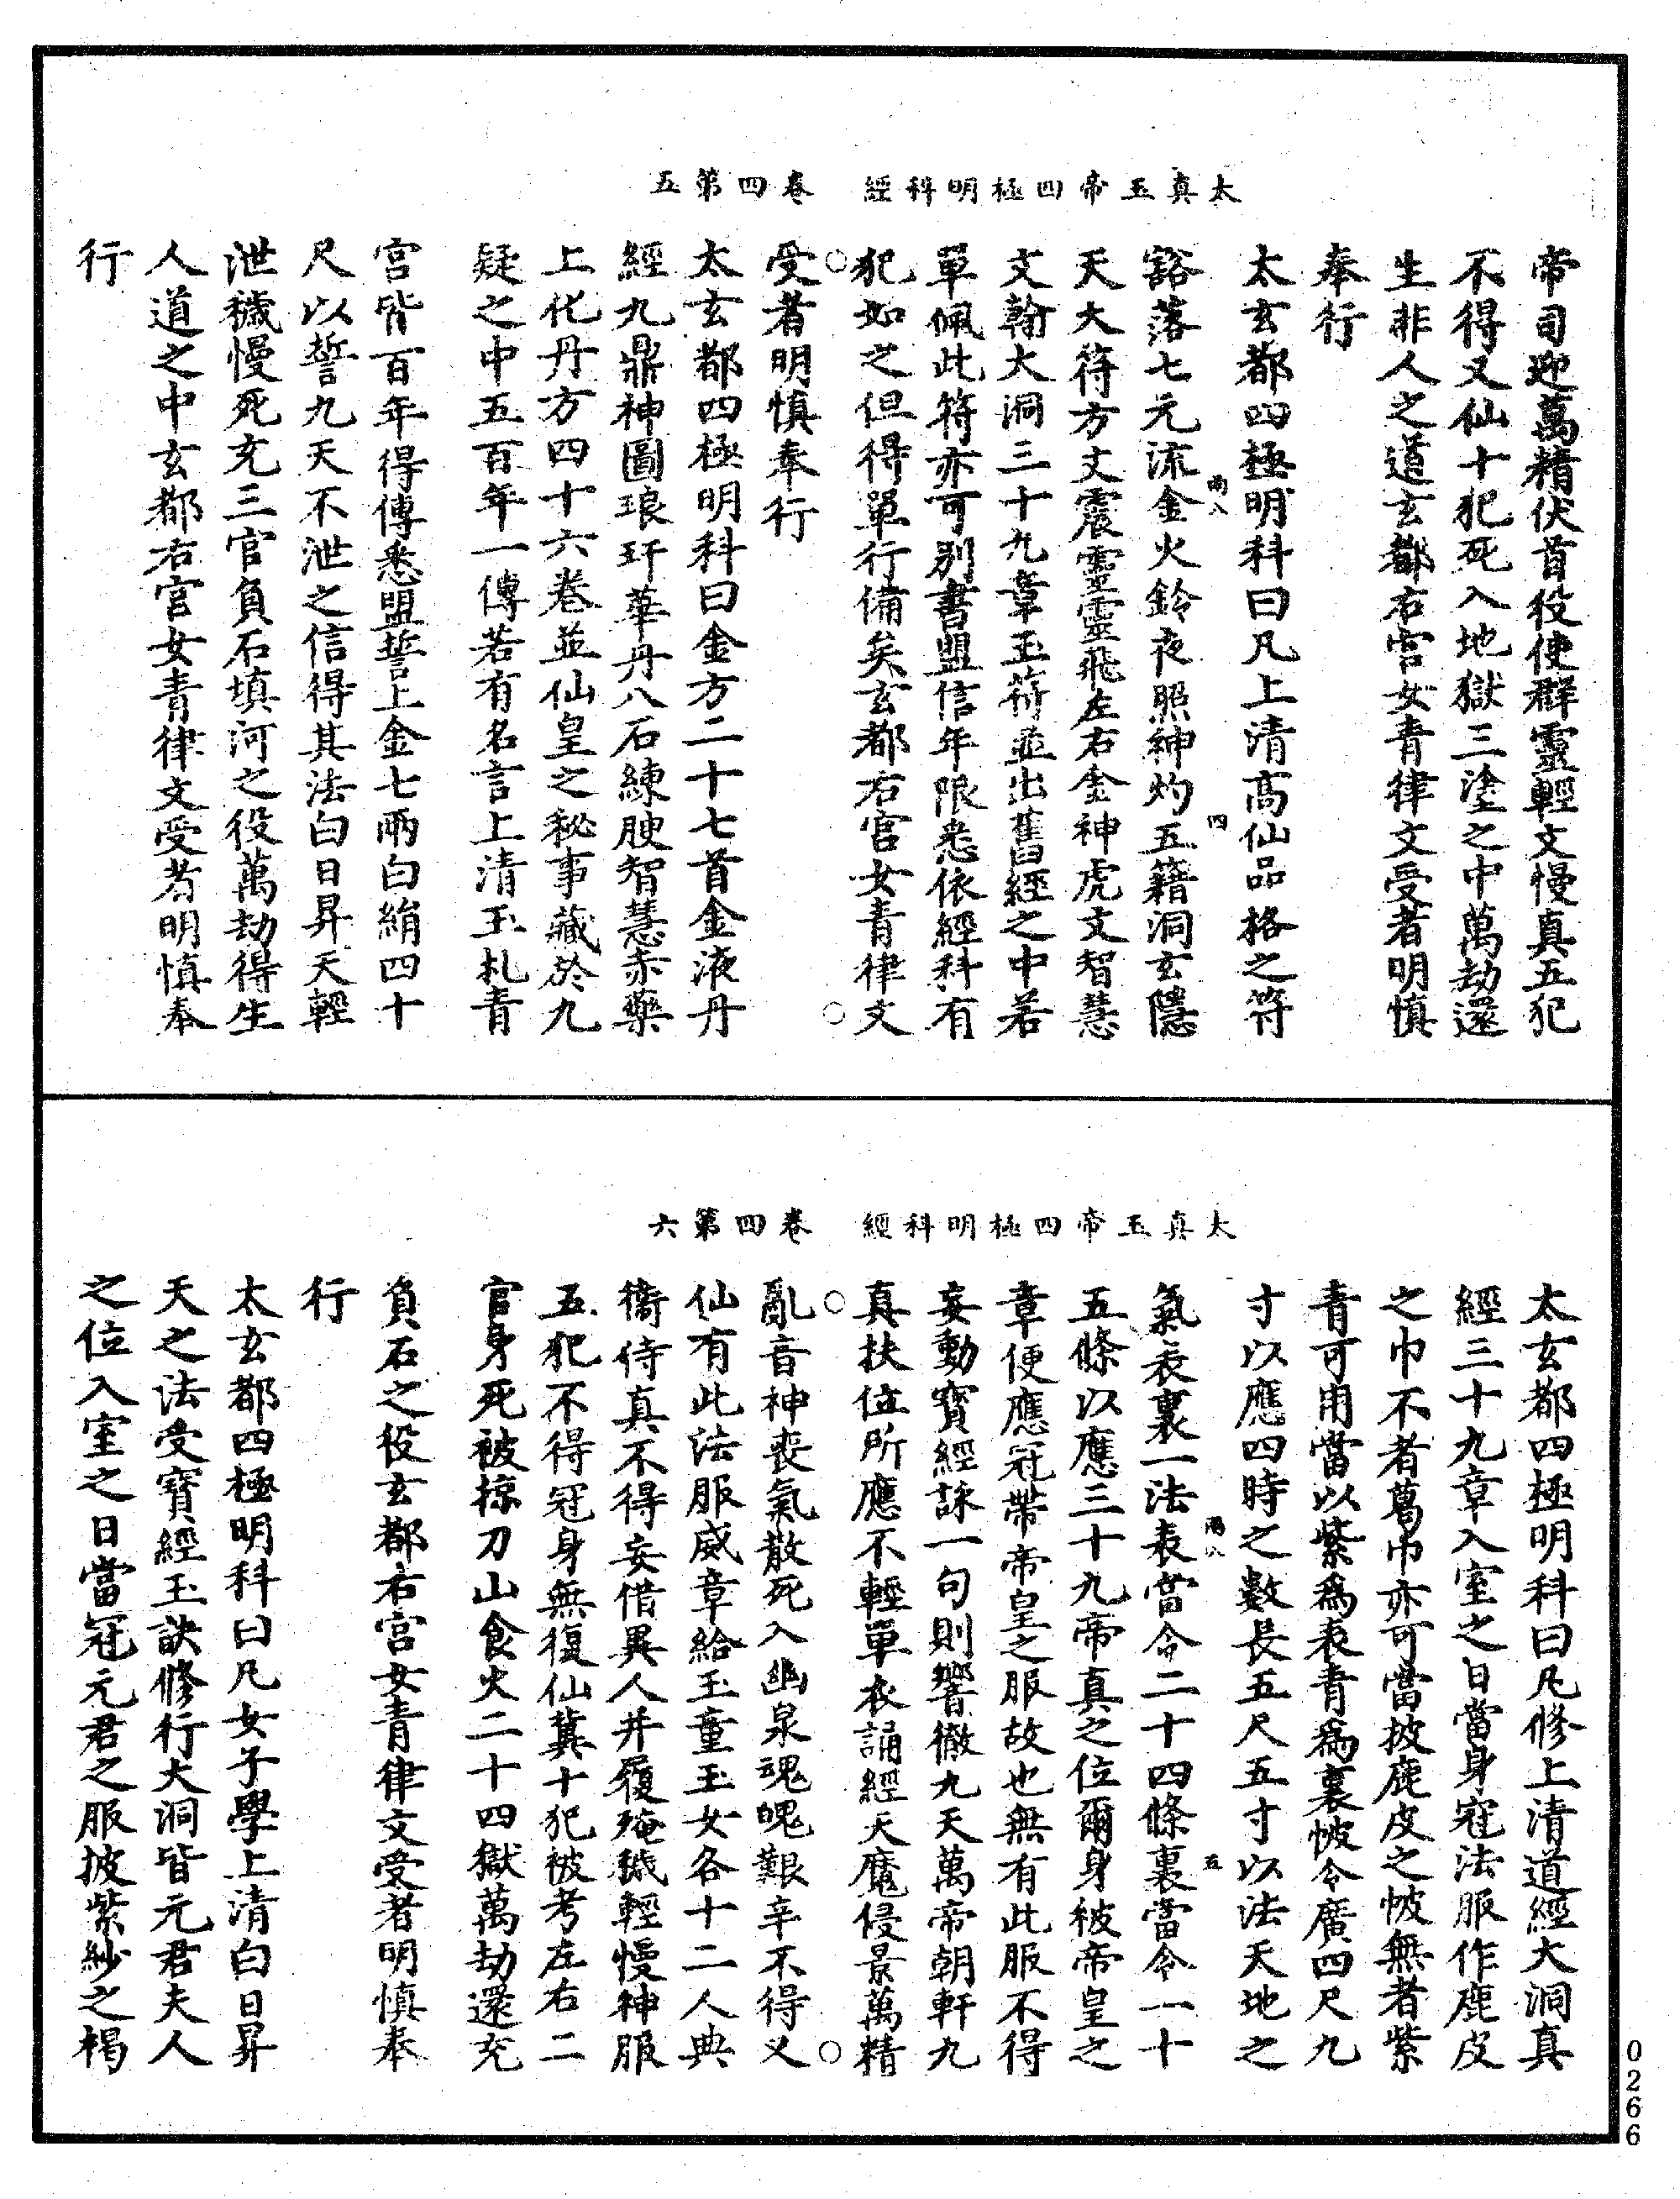 太真玉帝四極明科經　卷四第五
帝司迎萬精伏首役使群靈輕文慢真五犯
不得又仙十犯死入地獄三塗之中萬劫還
生非人之道玄都右宫女青律文受者明慎
奉行
太玄都四極明科曰凡上清高仙品格之符
豁落七元流金火鈴夜照神灼五籍洞玄隱
四
天大符方文震靈靈飛左右金神虎文智慧
文翰大洞三十九章玉符並出舊經之中若
單佩此符亦可别書盟信年限悉依經科有
犯如之但得單行備矣玄都右宫女青律文
受者明慎奉行
太玄都四極明科曰金方二十七首金液丹
經九鼎神圖琅玕華丹八石練腴智慧赤藥
上化丹方四十六卷並仙皇之秘事藏於九
疑之中五百年一傳若有名言上清玉札青
宫皆百年得傳悉盟誓上金七兩白絹四十
尺以誓九天不泄之信得其法白日昇天輕
泄穢慢死充三官負石填河之役萬劫得生
人道之中玄都右宫女青律文受者明慎奉
行
太真玉帝四極明科經　卷四第六
太玄都四極明科曰凡修上清道經大洞真
經三十九章入室之日當身冠法服作鹿皮
之巾不者葛巾亦可當披鹿皮之帔無者紫
青可用當以紫為表青為裏帔令廣四尺九
寸以應四時之數長五尺五寸以法天地之
氣表裏一法表當令二十四條裏當令一十
五
五條以應三十九帝真之位爾身被帝皇之
章便應冠帶帝皇之服故也無有此服不得
妄動寶經詠一句則響徹九天萬帝朝軒九
真扶位所應不輕單衣誦經天魔侵景萬精
亂音神喪氣散死入幽泉魂魄艱辛不得又
仙有此法服威章給玉童玉女各十二人典
衛侍真不得妄借異人并履殗穢輕慢神服
五犯不得冠身無復仙冀十犯被考左右二
官身死被掠刀山食火二十四獄萬劫還充
負石之役玄都右宫女青律文受者明慎奉
行
太玄都四極明科曰凡女子學上清白日昇
天之法受寶經玉訣修行大洞皆元君夫人
之位入室之日當冠元君之服披紫紗之褐
0266